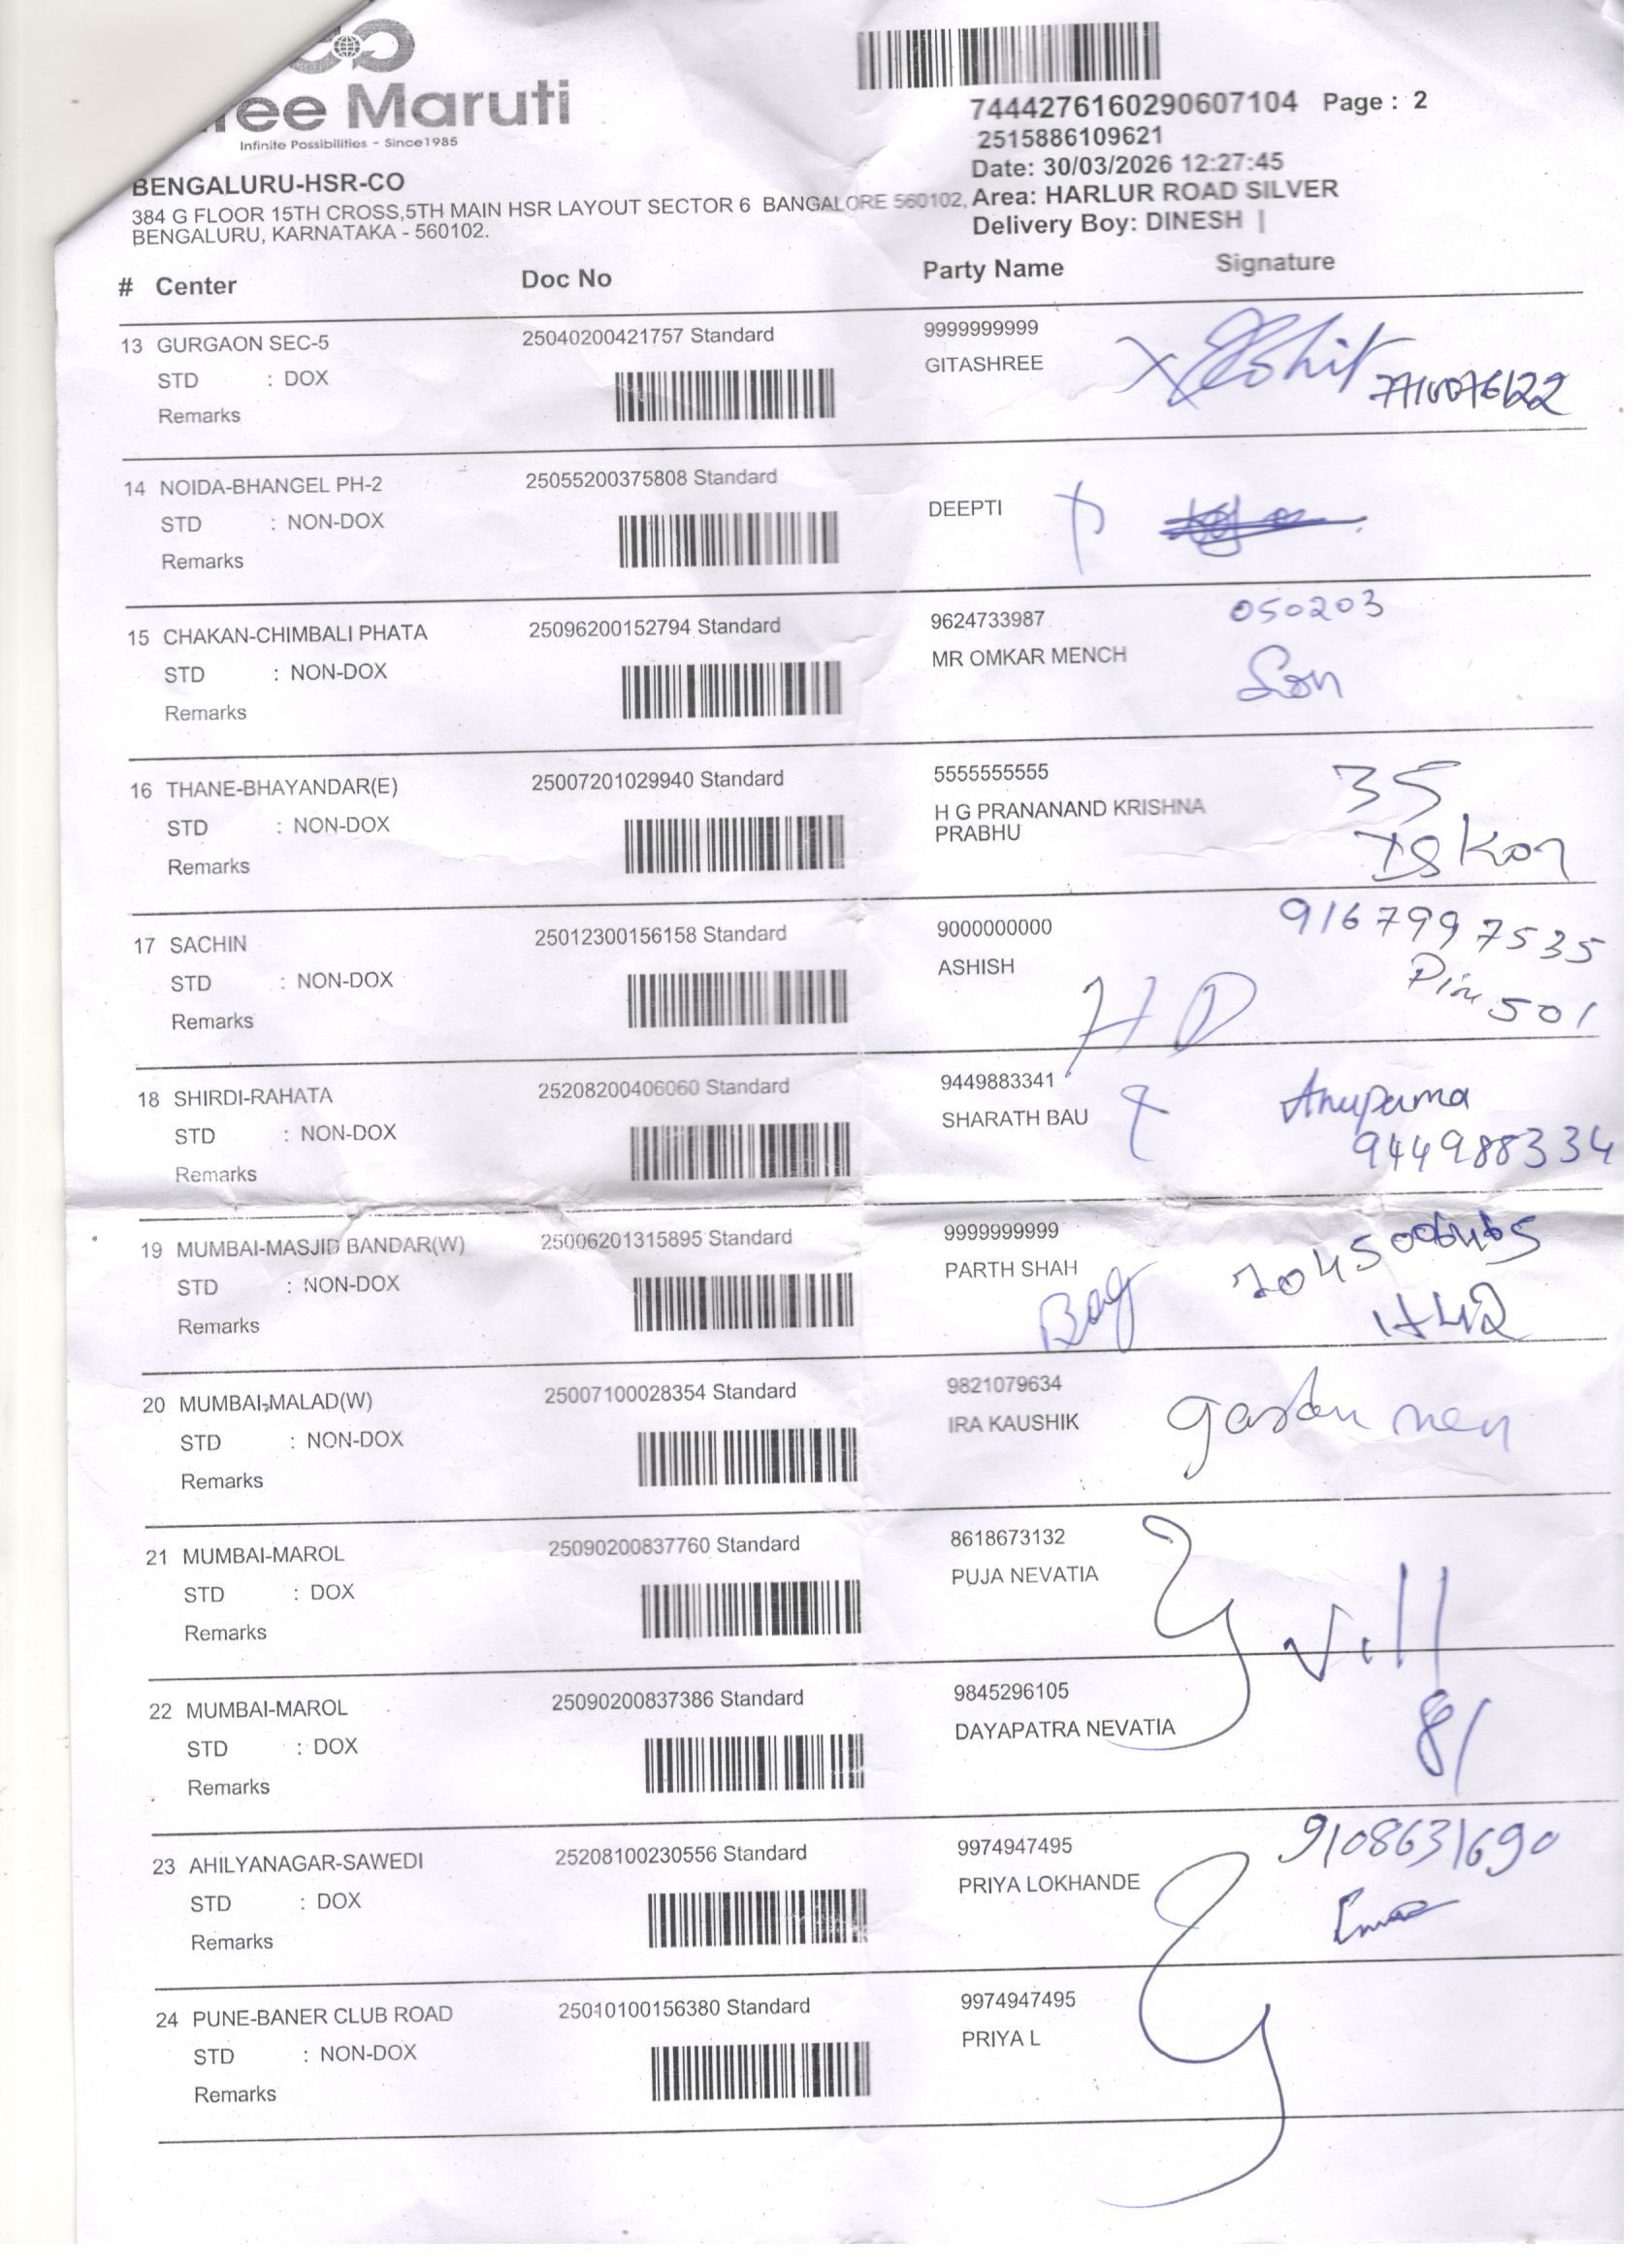 ree Maruti
Infinite Possibilities - Since1985
7444276160290607104 Page : 2
2515886109621
Date: 30/03/2026 12:27:45
BENGALURU-HSR-CO
384 G FLOOR 15TH CROSS,5TH MAIN HSR LAYOUT SECTOR 6 BANGALORE 560102, Area: HARLUR ROAD SILVER
BENGALURU, KARNATAKA - 560102. Delivery Boy: DINESH |
# Center Doc No Party Name Signature
13 GURGAON SEC-5 25040200421757 Standard 9999999999
STD : DOX GITASHREE
Remarks
14 NOIDA-BHANGEL PH-2 25055200375808 Standard
STD : NON-DOX DEEPTI
Remarks
15 CHAKAN-CHIMBALI PHATA 25096200152794 Standard 9624733987 050203
STD : NON-DOX MR OMKAR MENCH Son
Remarks
16 THANE-BHAYANDAR(E) 25007201029940 Standard 5555555555 35
STD : NON-DOX H G PRANANAND KRISHNA
PRABHU ISkon
Remarks
17 SACHIN 25012300156158 Standard 9000000000 9167997535
STD : NON-DOX ASHISH
Remarks HD 501
18 SHIRDI-RAHATA 25208200406060 Standard 9449883341 Anupama
STD : NON-DOX SHARATH BAU 944988334
Remarks
19 MUMBAI-MASJID BANDAR(W) 25006201315895 Standard 9999999999
STD : NON-DOX PARTH SHAH
Remarks Bag
20 MUMBAI-MALAD(W) 25007100028354 Standard 9821079634
STD : NON-DOX IRA KAUSHIK
Remarks
21 MUMBAI-MAROL 25090200837760 Standard 8618673132
STD : DOX PUJA NEVATIA
Remarks Vill
22 MUMBAI-MAROL 25090200837386 Standard 9845296105
STD : DOX DAYAPATRA NEVATIA 81
Remarks
23 AHILYANAGAR-SAWEDI 25208100230556 Standard 9974947495 9108631690
STD : DOX PRIYA LOKHANDE
Remarks
24 PUNE-BANER CLUB ROAD 25010100156380 Standard 9974947495
STD : NON-DOX PRIYA L
Remarks